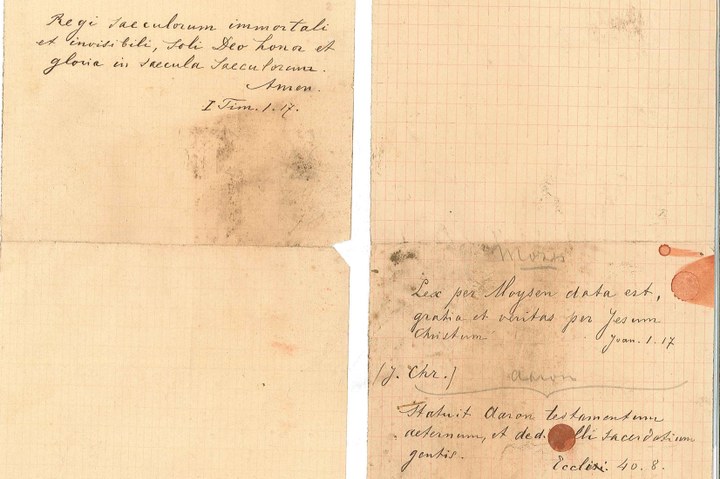 Regi saeculorum immortali
et invisibili, soli Deo honor et
gloria in saecula saeculorum.
Amen.
I Tim. 1. 17.
Lex per Moysen data est,
gratia et veritas per Jesum
Christum
Joan. 1. 17
(J. Chr.)
Aaron
Statuit Aaron testamentum
aeternum, et ded. illi sacerdotium
gentis.
40. 8.